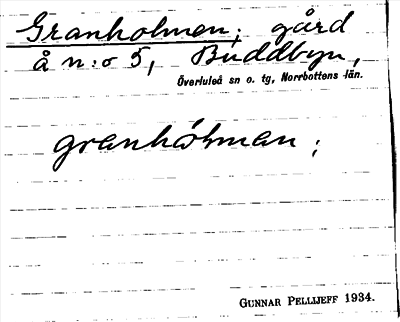 Granholmen; gård
å n:o 5, Buddbyn,
Överluleå sn o. tg, Norrbottens län.
granhólman ;
GUNNAR PELLIJEFF 1934.